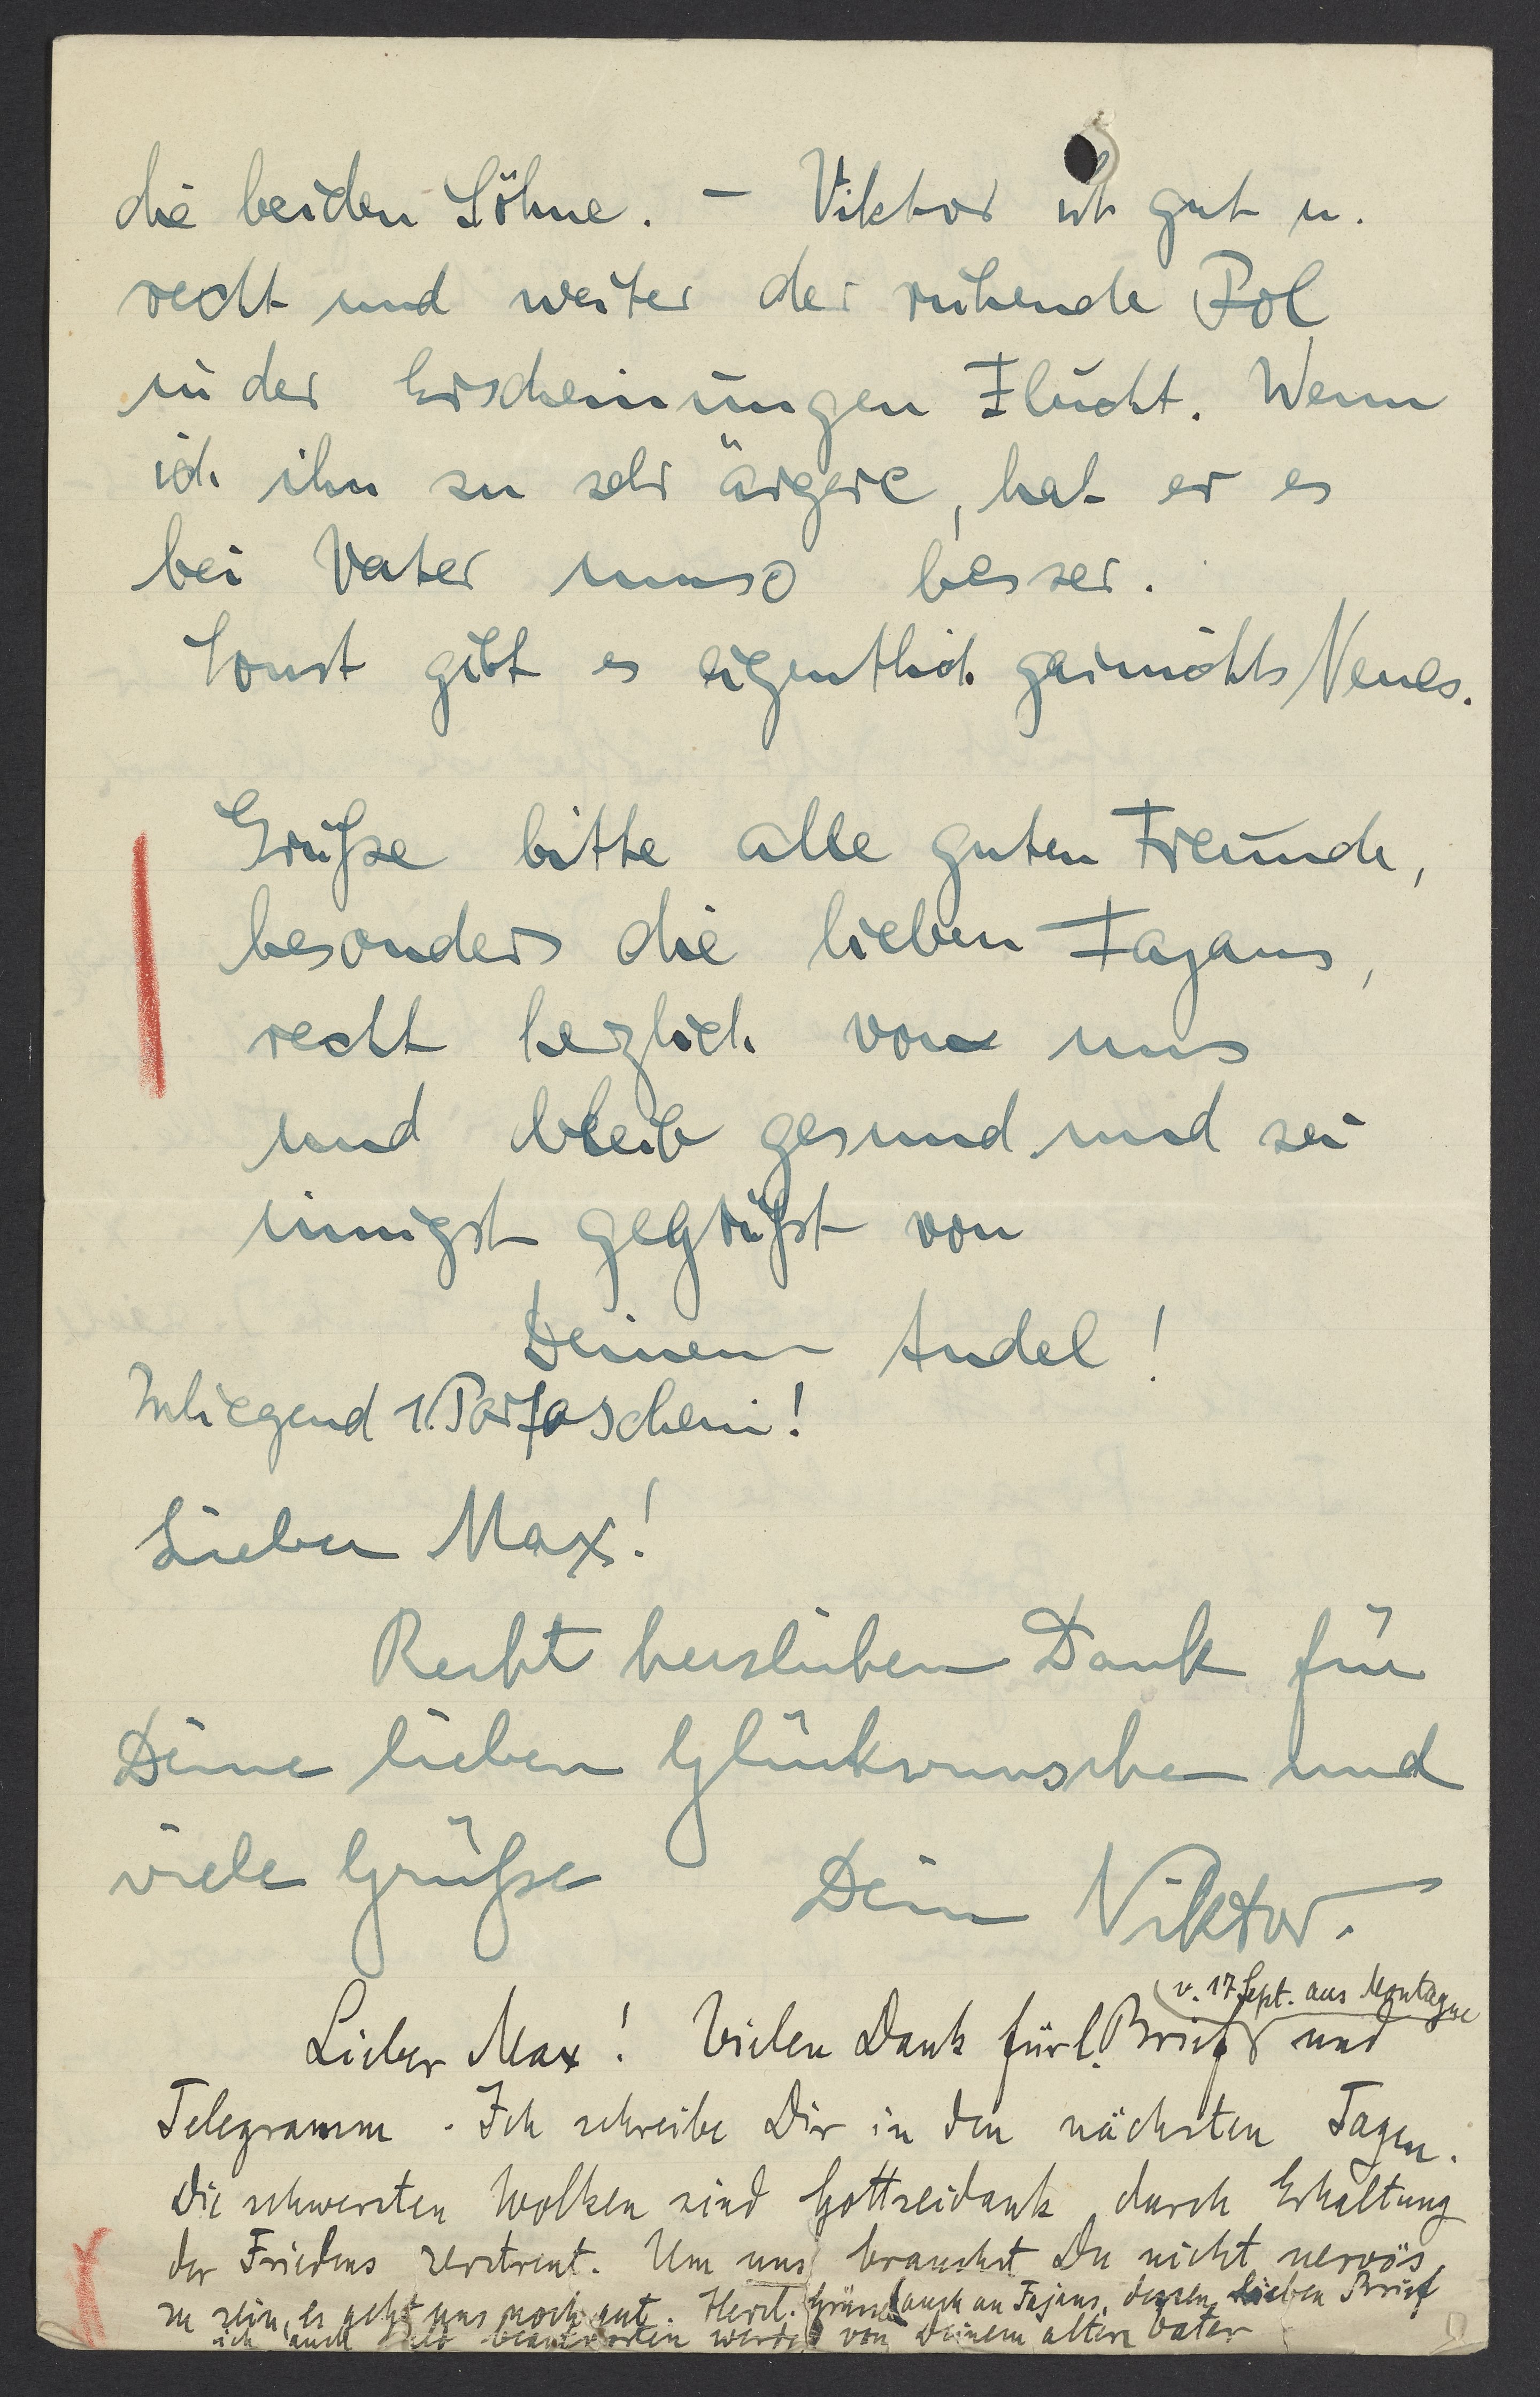 die beiden Söhne. – Viktor ist gut u.
recht und weiter der ruhende Pol
in der Erscheinungen Flucht. Wenn
ich ihn zu sehr ärgere, hat er es
bei Vater umso besser.
Sonst gibt es eigentlich garnichts Neues.
Grüße bitte alle guten Freunde,
besonders die lieben Fajans,
recht herzlich von uns
und bleib gesund und sei
innigst gegrüßt von
Deinem Andel!
Inliegend 1. Portoschein!
Lieber Max!
Recht herzlichen Dank für
Deine lieben Glückwunsche und
viele Grüße Dein Viktor.
v. 17 Sept. aus Montagne
Lieber Max! Vielen Dank für l. Brief und
Telegramm. Ich schreibe Dir in den nächsten Tagen.
Die schwersten Wolken sind Gottseidank durch Erhaltung
des Friedens zerstreut. Um uns brauchst Du nicht nervös
zu sein, es geht uns noch gut. Herzl. Grüsse auch an Fajans, dessen lieben Brief
ich auch beantworten werde von Deinem alten Vater